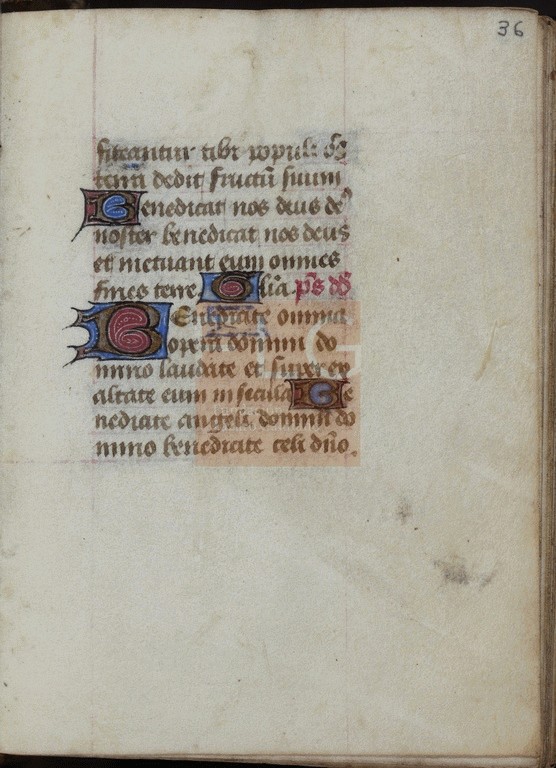 36
fiteantur tibi populi om̄s
terra dedit fructū suum
Benedicat nos deus deꝰ
noster benedicat nos deus
et metuant eum omnes
fines terre. Glīa. ps dd
Benedicite omnia
opera domini do
mino laudate et super ex
altate eum in secula Be
nedicite angeli domini do
mino benedicite celi dn̄o.